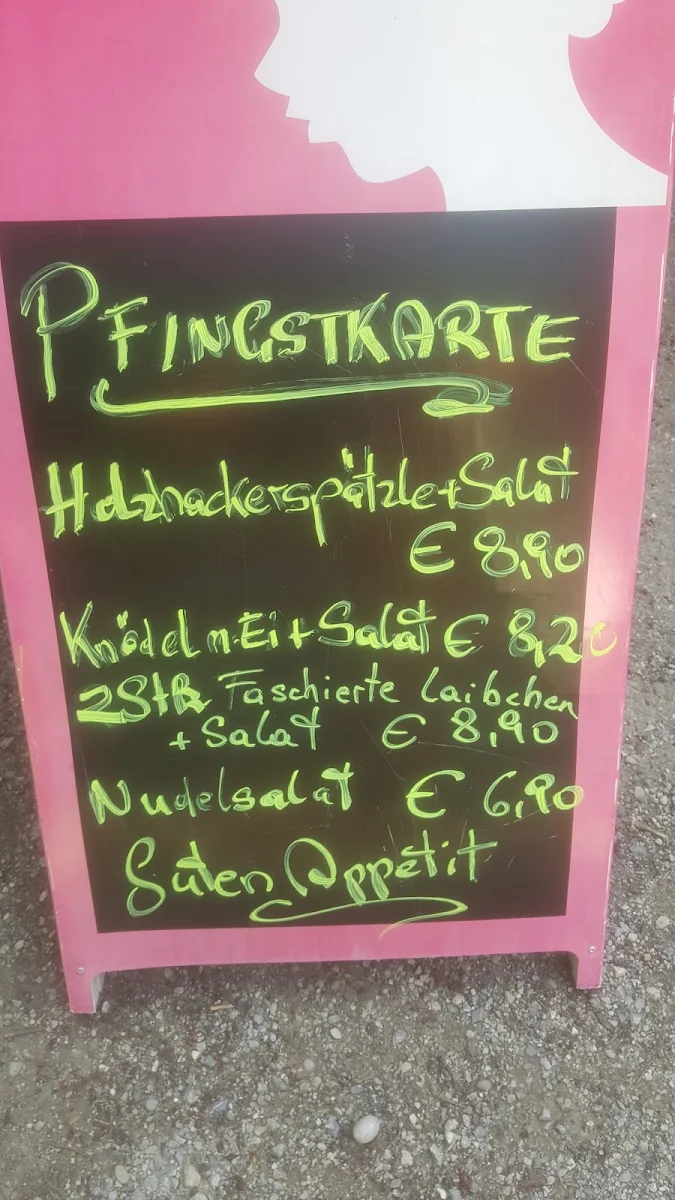 PFINGSTKARTE
Holzhackerspätzle + Salat
€ 8,90
Knödel m. Ei + Salat € 8,20
2 Stk Faschierte Laibchen
+ Salat € 8,90
Nudelsalat € 6,90
Guten Appetit